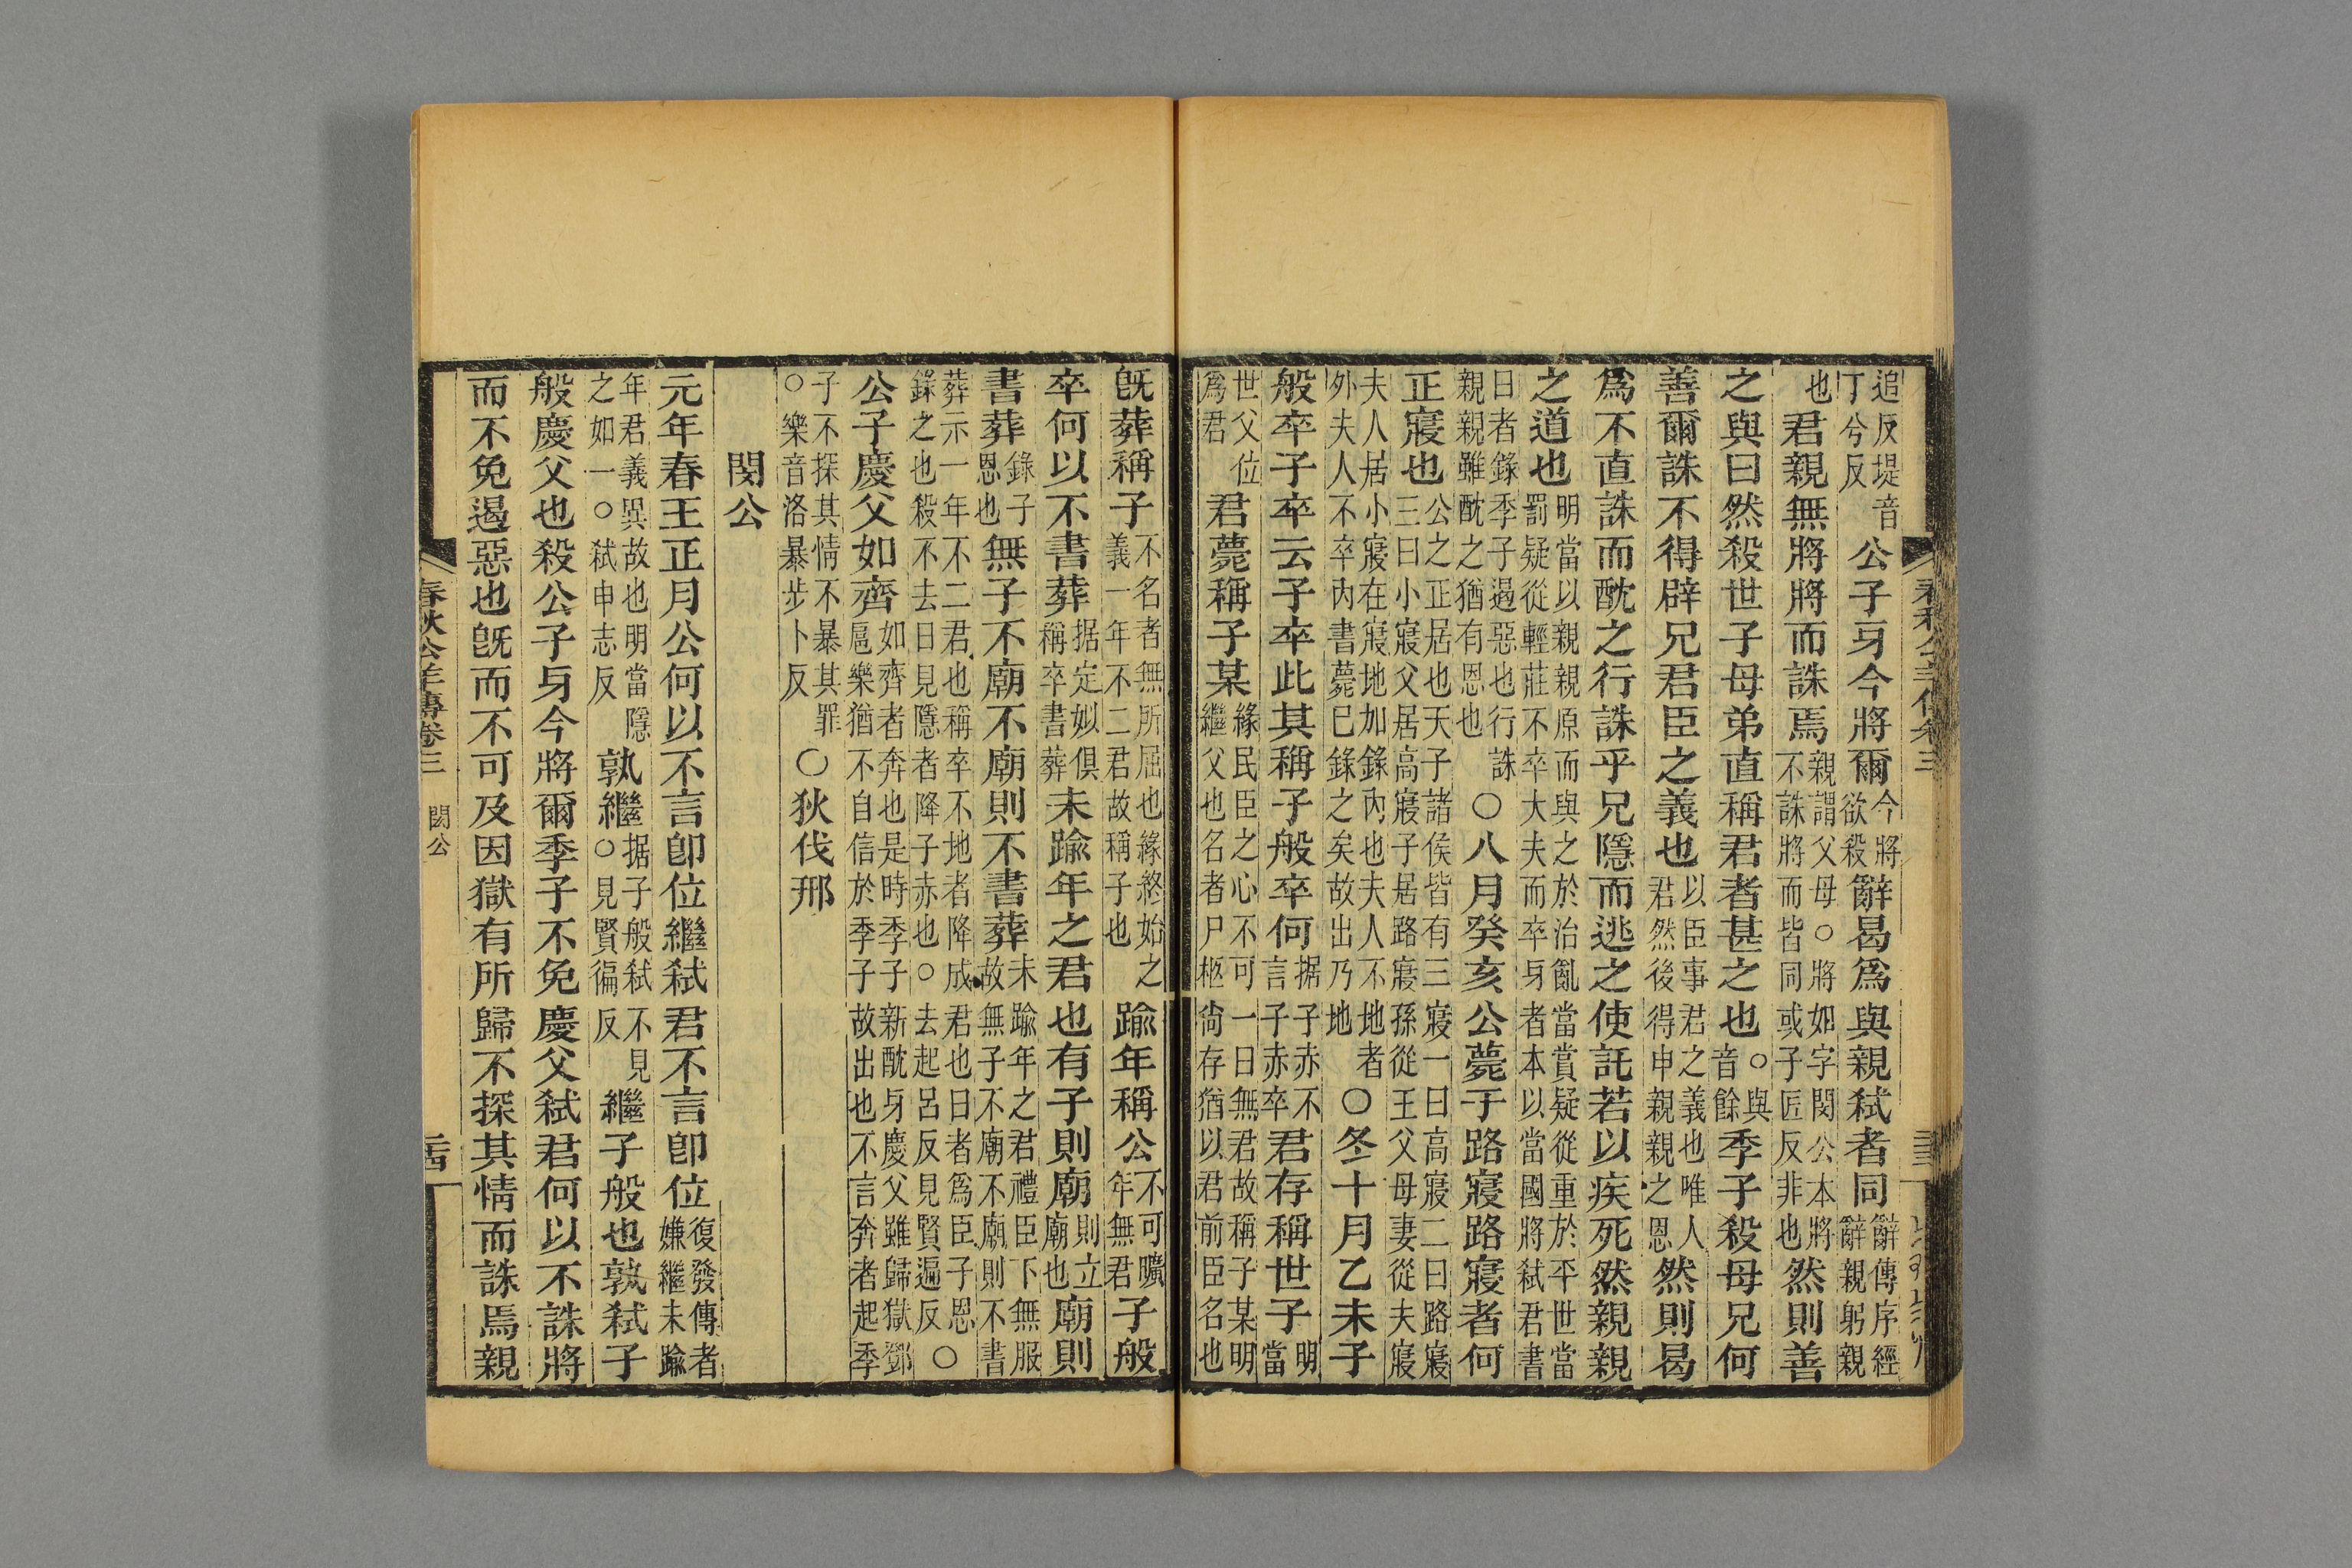 追反堤音丁兮反公子牙今將爾今將欲殺辭曷爲與親弑者同辭傳序經辭親躬親
也君親無將將而誅焉親謂父母○將如字閔公本將不誅將而皆同或子匠反非也然則善
之與曰然殺世子母弟直稱君者甚之也○與音餘季子殺母兄何
善爾誅不得辟兄君臣之義也以臣事君之義也唯人君然後得申親親之恩然則曷
爲不直誅而酖之行誅乎兄隱而逃之使託若以疾死然親親
之道也明當以親親原而與之於治亂當賞疑從重於平世當罰疑從輕莊不卒大夫而卒牙者本以當國將弑君書
日者錄季子遏惡也行誅親親雖酖之猶有恩也○八月癸亥公薨于路寢路寢者何
正寢也公之正居也天子諸侯皆有三寢一曰高寢二曰路寢三曰小寢父居高寢子居路寢孫從王父母妻從夫寢
夫人居小寢在寢地加錄內也夫人不地者外夫人不卒內書薨已錄之矣故出乃地○冬十月乙未子
般卒子卒云子卒此其稱子般卒何据子赤不言子赤卒君存稱世子明當
世父位爲君君薨稱子某緣民臣之心不可一日無君故稱子某明繼父也名者尸柩尙存猶以君前臣名也
旣葬稱子不名者無所屈也緣終始之義一年不二君故稱子也踰年稱公不可曠年無君子般
卒何以不書葬据定姒俱稱卒書葬未踰年之君也有子則廟則立廟也廟則
書葬錄子恩也無子不廟不廟則不書葬未踰年之君禮臣下無服故無子不廟不廟則不書
葬示一年不二君也稱卒不地者降成君也日者爲臣子恩錄之也殺不去日見隱者降子赤也○去起呂反見賢遍反○
公子慶父如齊如齊者奔也是時季子新酖牙慶父雖歸獄鄧扈樂猶不自信於季子故出也不言奔者起季
子不探其情不暴其罪○樂音洛暴步卜反○狄伐邢
閔公
元年春王正月公何以不言卽位繼弑君不言卽位復發傳者嫌繼未踰
年君義異故也明當隱之如一○弑申志反孰繼据子般弑不見○見賢徧反繼子般也孰弑子
般慶父也殺公子牙今將爾季子不免慶父弑君何以不誅將
而不免遏惡也旣而不可及因獄有所歸不探其情而誅焉親
春秋公羊傳卷三 閔公